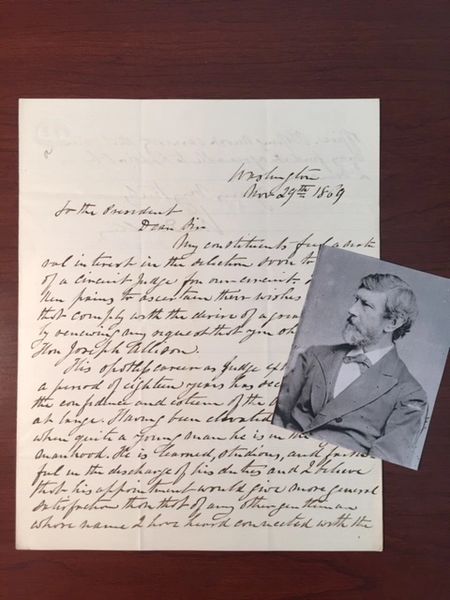 Washington
Nov. 29th 1869
To the President
Dear Sir
My constituents feel a nat
ural interest in the selection soon to
of a Circuit Judge for our circuit
ken pains to ascertain their wishes
that I comply with the desire of a great
by renewing my request that you
Hon Joseph Allison.
His spotless career as Judge
a period of eighteen years has
the confidence and esteem of the
at large. Having been elevated
when quite a young man he is in the
manhood. He is learned, studious, and faith
ful in the discharge of his duties and I believe
that his appointment would give more general
satisfaction than that of any other gentleman
whose name I have heard connected with the